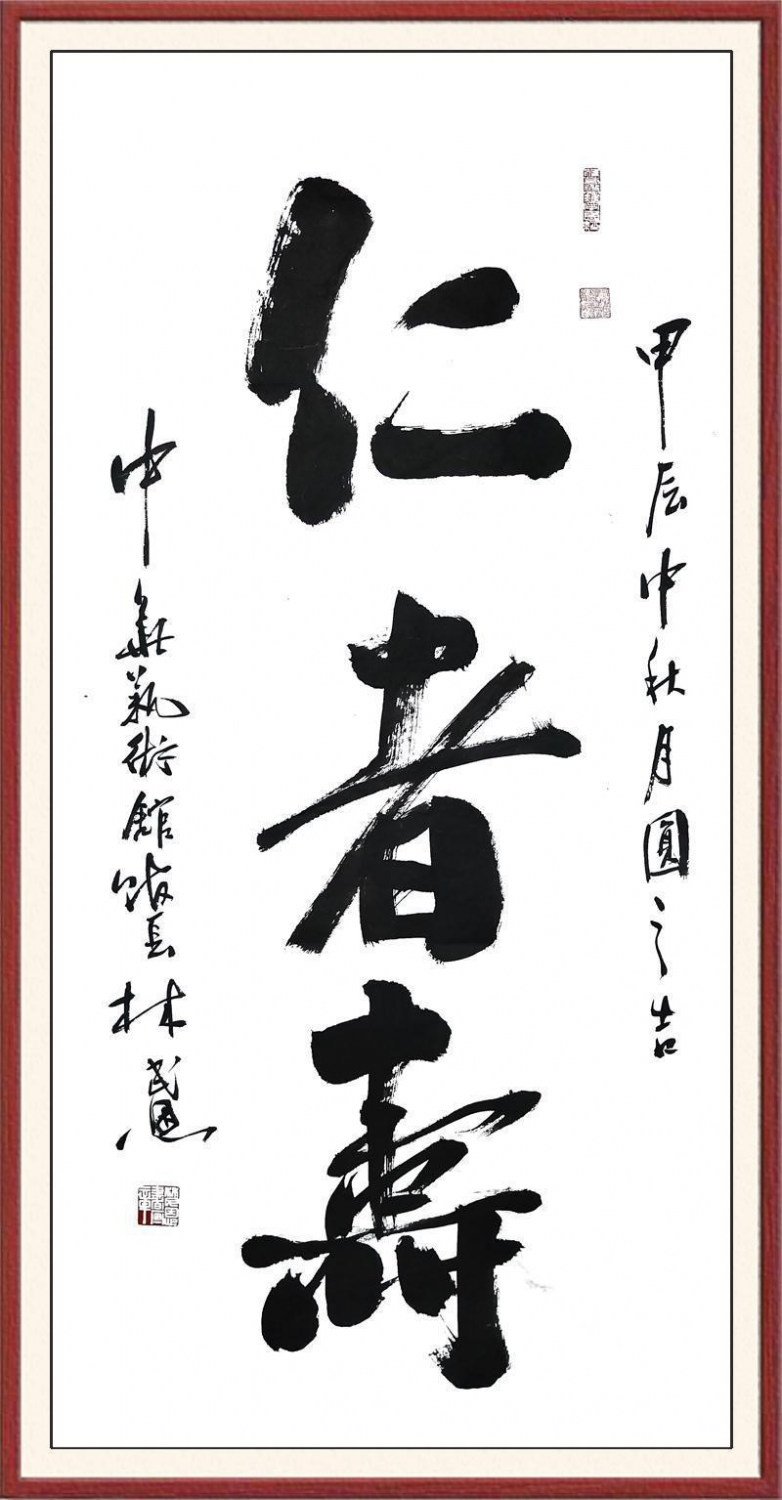 甲辰中秋月圓之吉
仁者壽
中華藝術館館長林